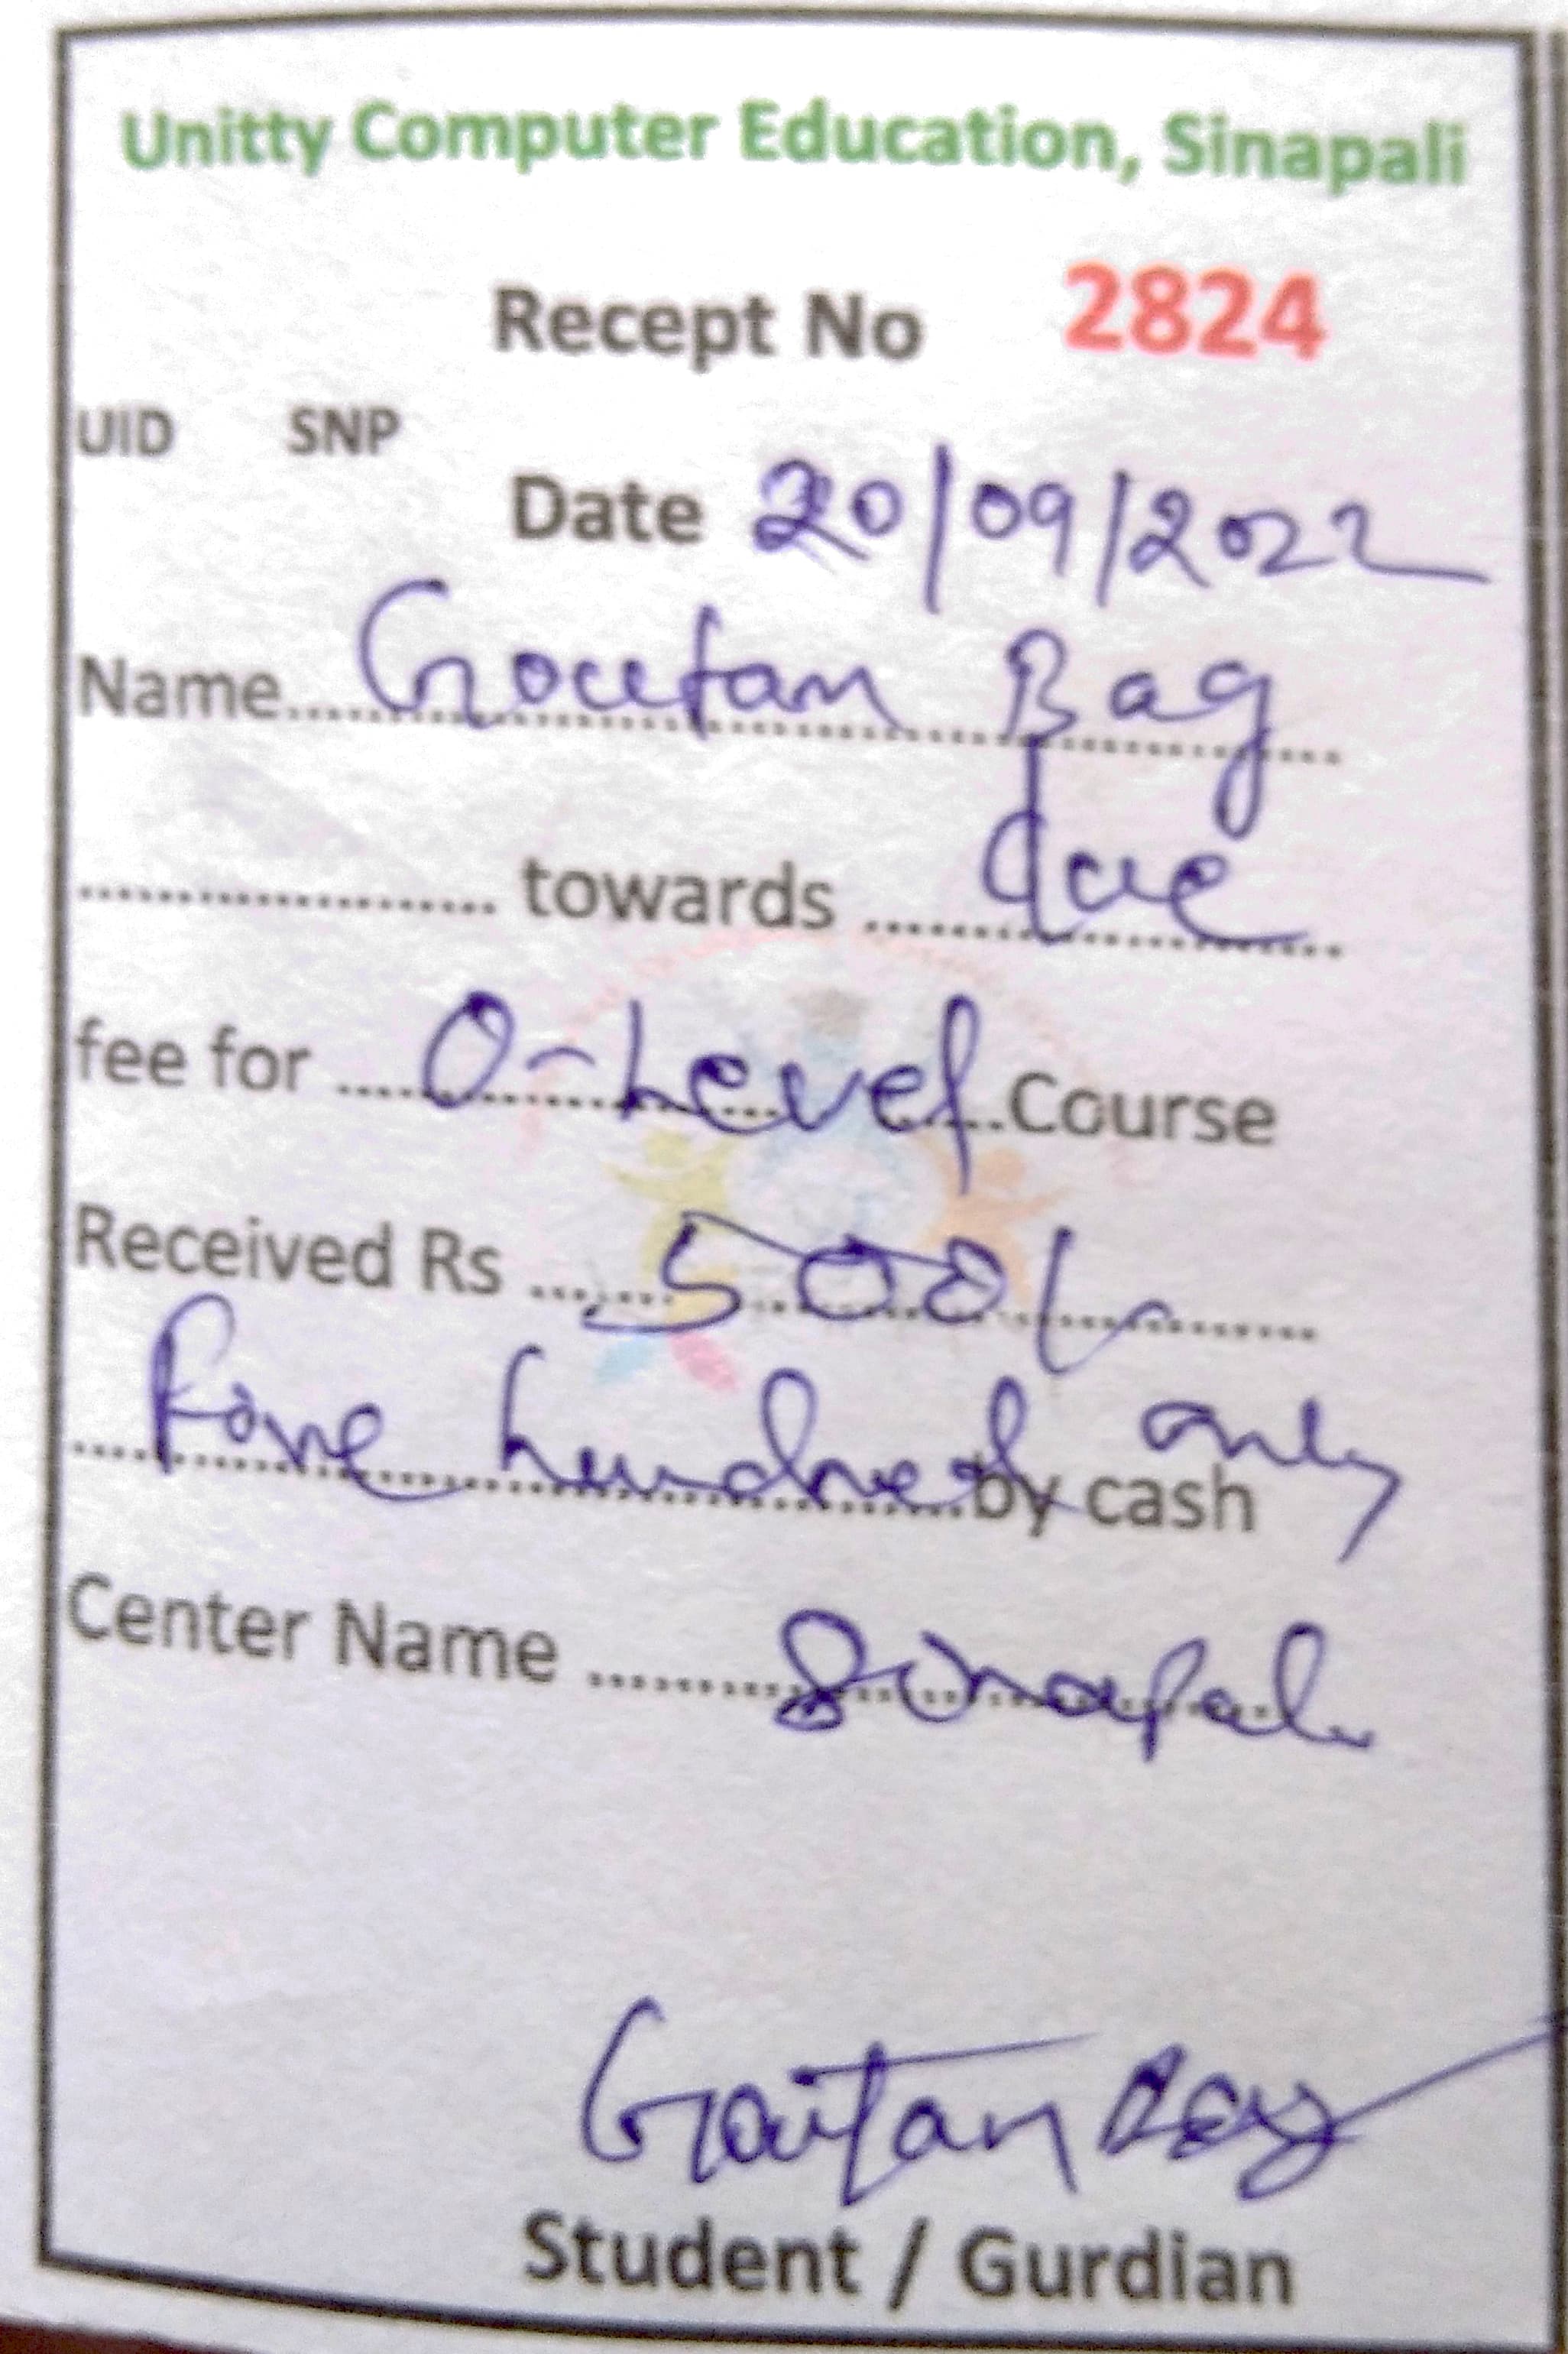 Unitty Computer Education, Sinapali
Recept No 2824
UID SNP
Date 20/09/2022
Name Goutam Bag
towards due
fee for O-Level Course
Received Rs 500/-
Five hundred only by cash
Center Name Sinapali
Gautam Bag
Student / Gurdian